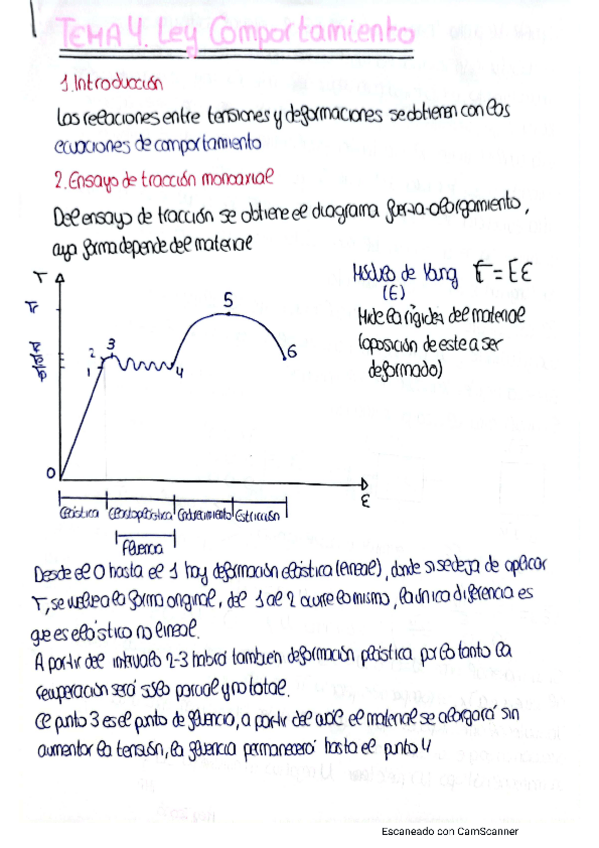 TEMA 4. Ley Comportamiento
1. Introducción
Las relaciones entre tensiones y deformaciones se obtienen con las
ecuaciones de comportamiento
2. Ensayo de tracción monoaxial
Del ensayo de tracción se obtiene el diagrama fuerza-alargamiento,
cuya forma depende del material
Módulo de Yang
(E)
= Eε
Mide la rigidez del material
(oposición de este a ser
deformado)
5
3
2
1
4
6
0
ε
elástica
elastoplástica
Endurecimiento
Estricción
fluencia
Desde el 0 hasta el 1 hay deformación elástica (lineal), donde si se deja de aplicar
T, se vuelve a la forma original, del 1 al 2 ocurre lo mismo, la única diferencia es
que es elástico no lineal.
A partir del intervalo 2-3 habrá también deformación plástica por lo tanto la
recuperación será sólo parcial y no total.
El punto 3 es el punto de fluencia, a partir del cual el material se alargará sin
aumentar la tensión, la fluencia permanecerá hasta el punto 4
Escaneado con CamScanner